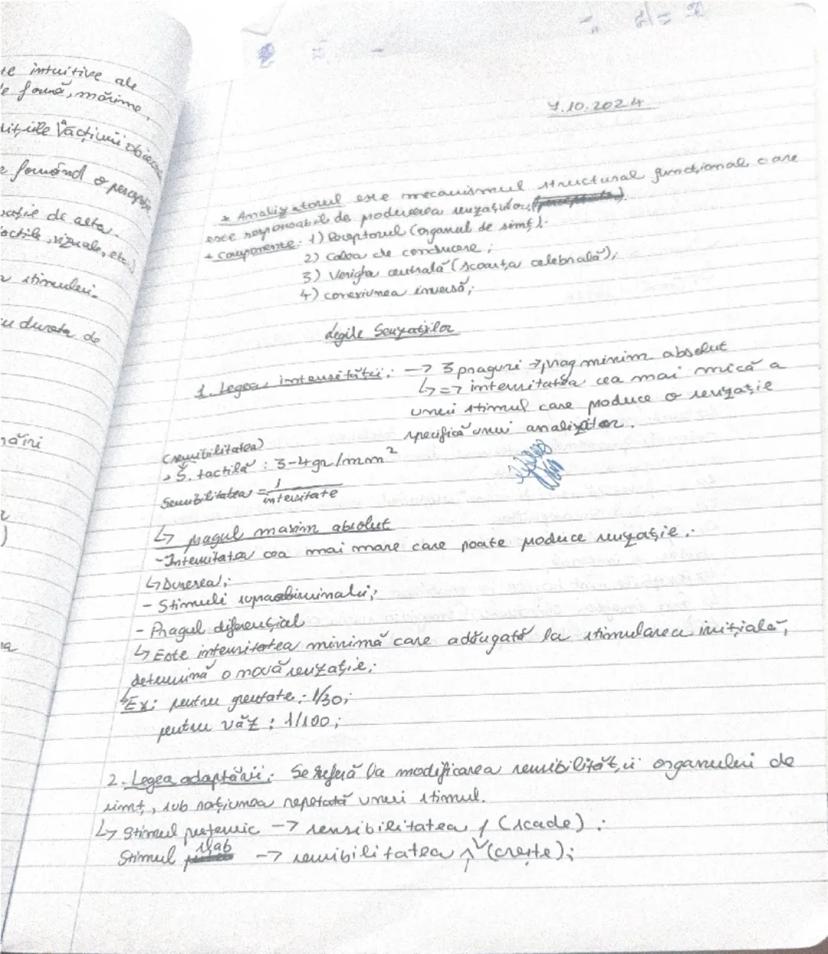 te intuitive ale
formă, mărime,
acțiunii
formând o percepție
de alta.
tactile, vizuale, etc.)
stimului.
cu durata de
7.10.2024
* Analizatorul este mecanismul structural funcțional care
este responsabil de producerea senzațiilor.
+ Componente: 1) Receptorul (organul de simț).
2) Calea de conducere;
3) Veriga centrală (scoarța celebrală);
4) conexiunea inversă;
Legile Senzațiilor
1. Legea intensității: → 3 praguri → prag minim absolut
↳ => intensitatea cea mai mică a
unui stimul care produce o senzație
specifică unui analizator.
(sensibilitatea)
S. tactilă : 3-4gr/mm²
Sensibilitatea = 1/intensitate
↳ pragul maxim absolut
- Intensitatea cea mai mare care poate produce senzație.
↳ Durerea;
- Stimuli supraliminali;
- Pragul diferențial
↳ Este intensitatea minimă care adăugată la stimularea inițială,
determină o nouă senzație;
Ex: pentru greutate: 1/30;
pentru văz : 1/100;
2. Legea adaptării: Se referă la modificarea sensibilității organului de
simț, sub acțiunea repetată unui stimul.
↳ Stimul puternic → sensibilitatea (scade) ;
Stimul slab → sensibilitatea ↑ (crește);